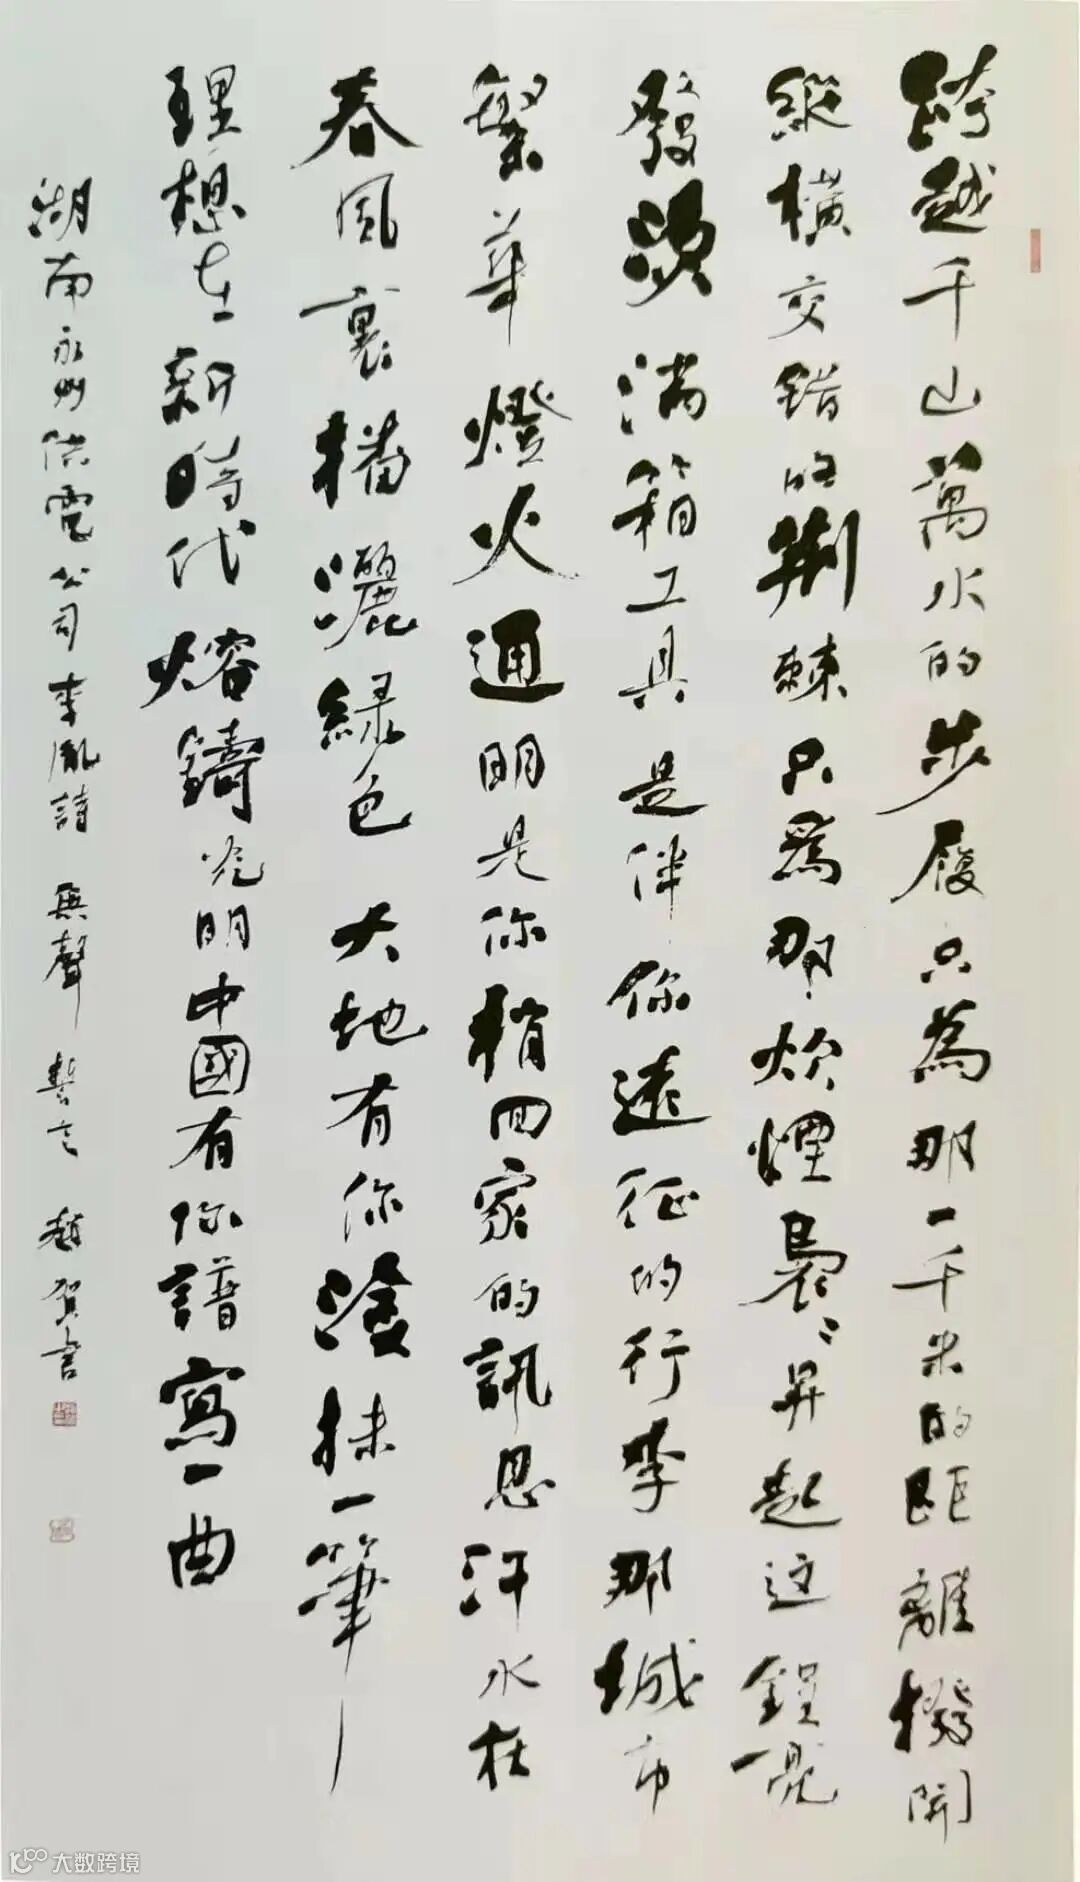 跨越千山萬水的步履只為那一千米的距離撥開
縱橫交錯的荊棘只為那炊煙裊〻昇起这鋥亮
發燙滿箱工具是伴你遠征的行李那城市
繁華燈火通明是你稍回家的訊息汗水在
春風裏播灑綠色大地有你塗抹一筆
理想在新時代熔鑄光明中國有你譜寫一曲
湖南永州供電公司李胤詩無聲誓言趙賀書
大数跨境